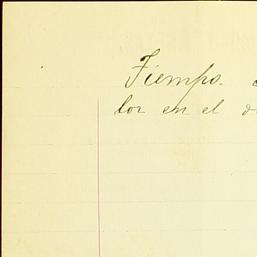 Tiempo.
lor en el